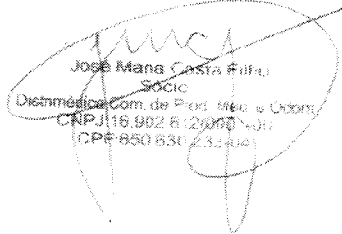 José Maria Costa Filho
Sócio
Distrimédica Com. de Prod. Méd. e Odont.
CNPJ 16.902.612/000
CPF 850.630.233-04